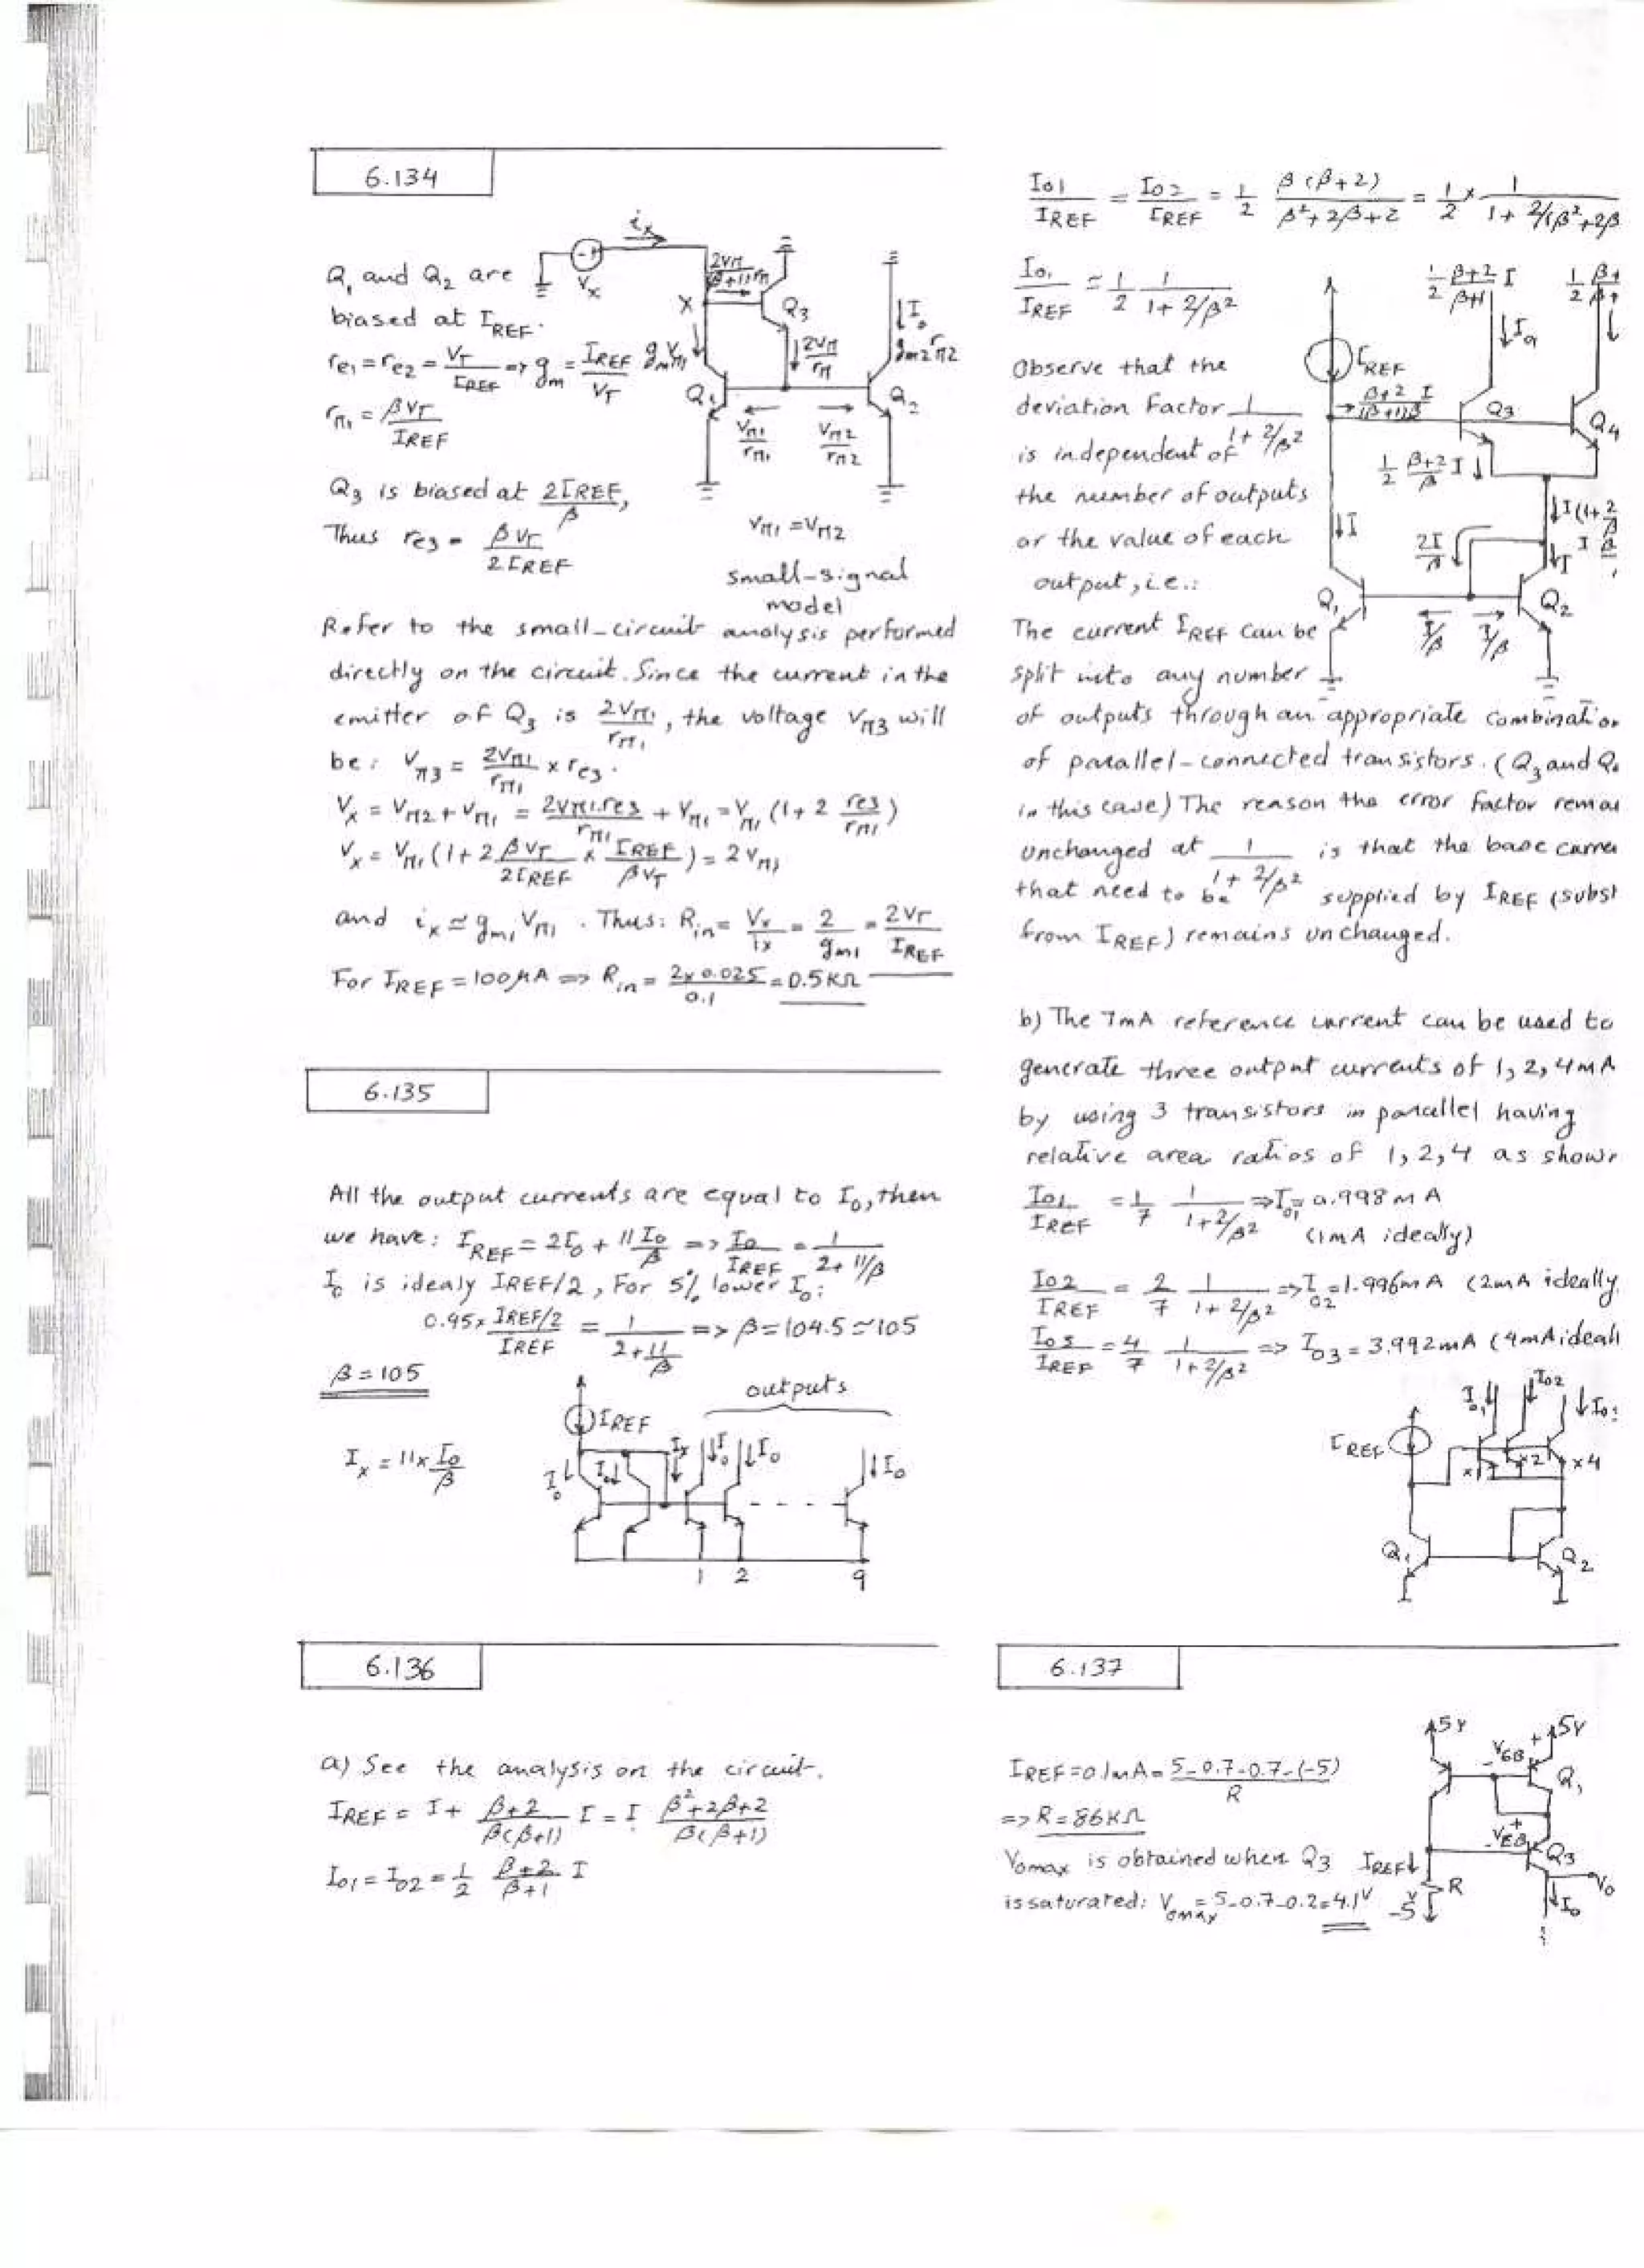 6.134
Q1 and Q2 are
biased at IREF.
re1 = re2 = VT/IREF => gm = IREF/VT
rπ1 = βVT/IREF
Q3 is biased at 2IREF/β,
Thus re3 = βVT/2IREF
ix
Vx
X
2Vπ/(β+1)rπ
Q3
2Vπ/rπ
Io
gm2rπ2
gmVπ1
Q1
Q2
Vπ1/rπ1
Vπ2/rπ2
Vπ1 = Vπ2
small-signal
model
Refer to the small-circuit analysis performed
directly on the circuit. Since the current in the
emitter of Q3 is 2Vπ1/rπ1, the voltage Vπ3 will
be: Vπ3 = 2Vπ1/rπ1 × re3.
Vx = Vπ2 + Vπ1 = 2Vπ1.re3/rπ1 + Vπ1 = Vπ1 (1+2 re3/rπ1)
Vx = Vπ1 (1+2 βVT/2IREF × IREF/βVT) = 2Vπ1
and ix ≃ gm1 Vπ1 . Thus: Rin = Vx/ix = 2/gm1 = 2VT/IREF
For IREF = 100μA => Rin = 2×0.025/0.1 = 0.5KΩ
6.135
All the output currents are equal to Io, then
we have: IREF = 2Io + 11 Io/β => Io/IREF = 1/(2+11/β)
Io is idealy IREF/2, For 5% lower Io:
0.95× (IREF/2)/IREF = 1/(2+11/β) => β = 104.5 ≃ 105
β = 105
outputs
IREF
Ix = 11× Io/β
Io
Io
Ix
Io
Io
Io
1 2 9
6.136
a) See the analysis on the circuit.
IREF = I + (β+2)/(β(β+1)) I = I (β²+2β+2)/(β(β+1))
Io1 = Io2 = 1/2 (β+2)/(β+1) I
Io1/IREF = Io2/IREF = 1/2 β(β+2)/(β²+2β+2) = 1/2 × 1/(1+2/(β²+2β
Io1/IREF ≃ 1/2 1/(1+2/β²)
Observe that the
deviation factor 1/(1+2/β²)
is independent of
the number of outputs
or the value of each
output, i.e.:
The current IREF can be
split into any number
of outputs through an appropriate combination
of parallel-connected transistors. (Q3 and Q
in this case) The reason the error factor remai
unchanged at 1/(1+2/β²) is that the base curre
that need to be supplied by IREF (subst
from IREF) remains unchanged.
1/2 (β+2)/(β+1) I
1/2 β+
IREF
(β+2)/((β+1)β) I
Q3
Q4
1/2 (β+2)/β I
I(1+2/β
I
2I/β
I
Q1
Q2
I/β
I/β
b) The 7mA reference current can be used to
generate three output currents of 1, 2, 4mA
by using 3 transistors in parallel having
relative area ratios of 1, 2, 4 as show
Io1/IREF = 1/7 1/(1+2/β²) => Io1 = 0.998mA
(1mA ideally)
Io2/IREF = 2/7 1/(1+2/β²) => Io2 = 1.996mA (2mA ideally
Io3/IREF = 4/7 1/(1+2/β²) => Io3 = 3.992mA (4mA ideall
Io1
Io2
IREF
×1
×2
×4
Q1
Q2
6.137
IREF = 0.1mA = (5-0.7-0.7-(-5))/R
=> R = 86KΩ
Vomax is obtained when Q3
is saturated: Vomax = 5-0.7-0.2 = 4.1V
5V
5V
VEB
+
-
Q1
+
VEB
-
Q3
IREF
R
-5V
Vo
Io